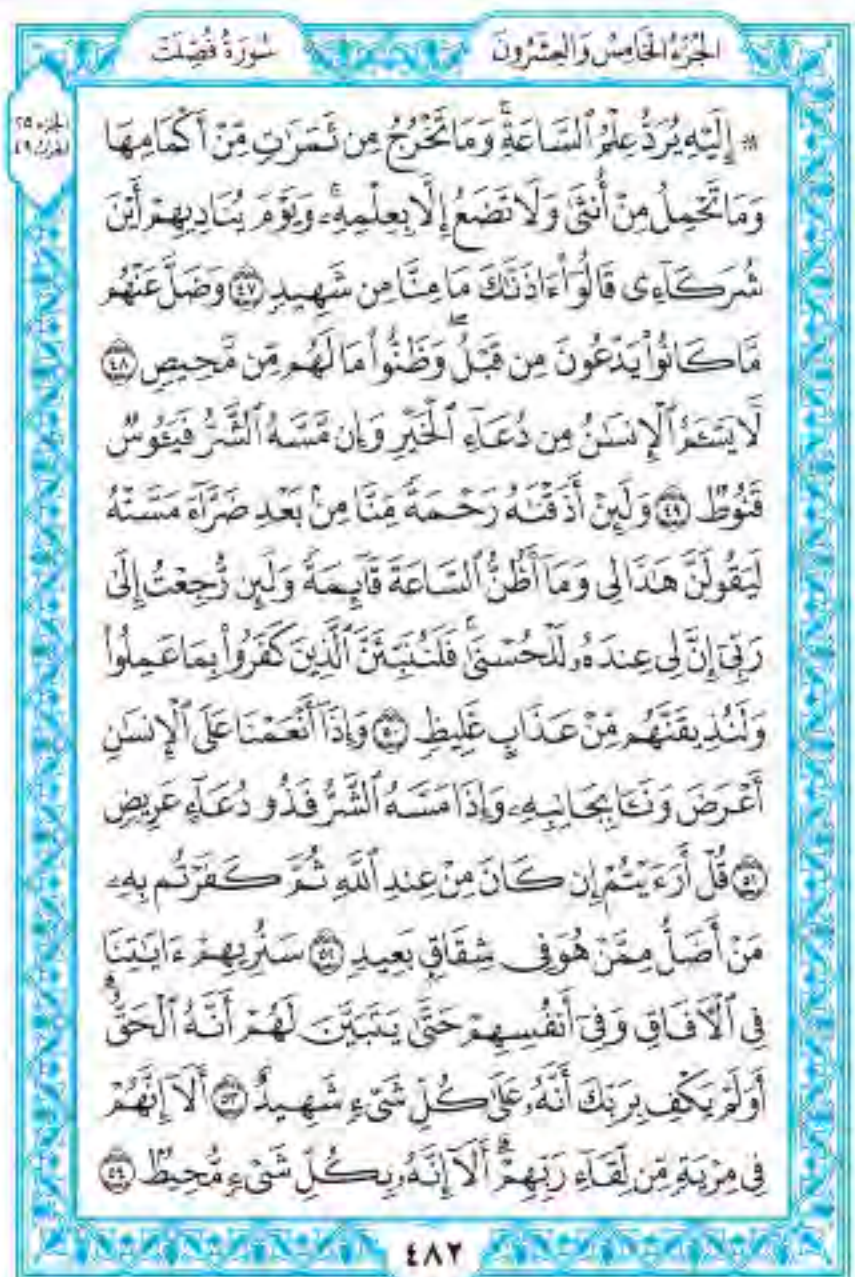 سُورَةُ فُصِّلَتْ
الجُزْءُ الخَامِسُ وَالعِشْرُونَ
الجزء ٢٥
الحزب ٤٩
۞ إِلَيْهِ يُرَدُّ عِلْمُ ٱلسَّاعَةِۚ وَمَا تَخْرُجُ مِن ثَمَرَٰتٍ مِّنْ أَكْمَامِهَا
وَمَا تَحْمِلُ مِنْ أُنثَىٰ وَلَا تَضَعُ إِلَّا بِعِلْمِهِۦۚ وَيَوْمَ يُنَادِيهِمْ أَيْنَ
شُرَكَآءِى قَالُوٓا۟ ءَاذَنَّٰكَ مَا مِنَّا مِن شَهِيدٍ ۝٤٧ وَضَلَّ عَنْهُم
مَّا كَانُوا۟ يَدْعُونَ مِن قَبْلُۖ وَظَنُّوا۟ مَا لَهُم مِّن مَّحِيصٍ ۝٤٨
لَّا يَسْـَٔمُ ٱلْإِنسَٰنُ مِن دُعَآءِ ٱلْخَيْرِ وَإِن مَّسَّهُ ٱلشَّرُّ فَيَـُٔوسٌ
قَنُوطٌ ۝٤٩ وَلَئِنْ أَذَقْنَٰهُ رَحْمَةً مِّنَّا مِنۢ بَعْدِ ضَرَّآءَ مَسَّتْهُ
لَيَقُولَنَّ هَٰذَا لِى وَمَآ أَظُنُّ ٱلسَّاعَةَ قَآئِمَةً وَلَئِن رُّجِعْتُ إِلَىٰ
رَبِّىٓ إِنَّ لِى عِندَهُۥ لَلْحُسْنَىٰۚ فَلَنُنَبِّئَنَّ ٱلَّذِينَ كَفَرُوا۟ بِمَا عَمِلُوا۟
وَلَنُذِيقَنَّهُم مِّنْ عَذَابٍ غَلِيظٍ ۝٥٠ وَإِذَآ أَنْعَمْنَا عَلَى ٱلْإِنسَٰنِ
أَعْرَضَ وَنَـَٔا بِجَانِبِهِۦ وَإِذَا مَسَّهُ ٱلشَّرُّ فَذُو دُعَآءٍ عَرِيضٍ
۝٥١ قُلْ أَرَءَيْتُمْ إِن كَانَ مِنْ عِندِ ٱللَّهِ ثُمَّ كَفَرْتُم بِهِۦ
مَنْ أَضَلُّ مِمَّنْ هُوَ فِى شِقَاقٍۭ بَعِيدٍ ۝٥٢ سَنُرِيهِمْ ءَايَٰتِنَا
فِى ٱلْءَافَاقِ وَفِىٓ أَنفُسِهِمْ حَتَّىٰ يَتَبَيَّنَ لَهُمْ أَنَّهُ ٱلْحَقُّۗ
أَوَلَمْ يَكْفِ بِرَبِّكَ أَنَّهُۥ عَلَىٰ كُلِّ شَىْءٍ شَهِيدٌ ۝٥٣ أَلَآ إِنَّهُمْ
فِى مِرْيَةٍ مِّن لِّقَآءِ رَبِّهِمْۗ أَلَآ إِنَّهُۥ بِكُلِّ شَىْءٍ مُّحِيطٌۢ ۝٥٤
٤٨٢